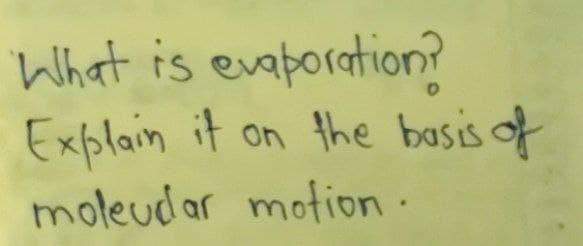 What is evaporation?
Explain it on the basis of
moleudar motion.